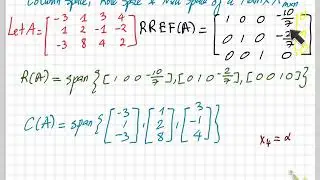 Column Space, Row Space & Null Space of a Matrix A
Let A = [-3 1 3 4
1 2 -1 -2
-3 8 4 2]
RREF(A) = [1 0 0 -10/7
0 1 0 -2/7
0 0 1 0]
R(A) = span{[1 0 0 -10/7], [0 1 0 -2/7], [0 0 1 0]}
C(A) = span{[-3 1 -3], [1 2 8], [3 -1 4]}
x₄ = α